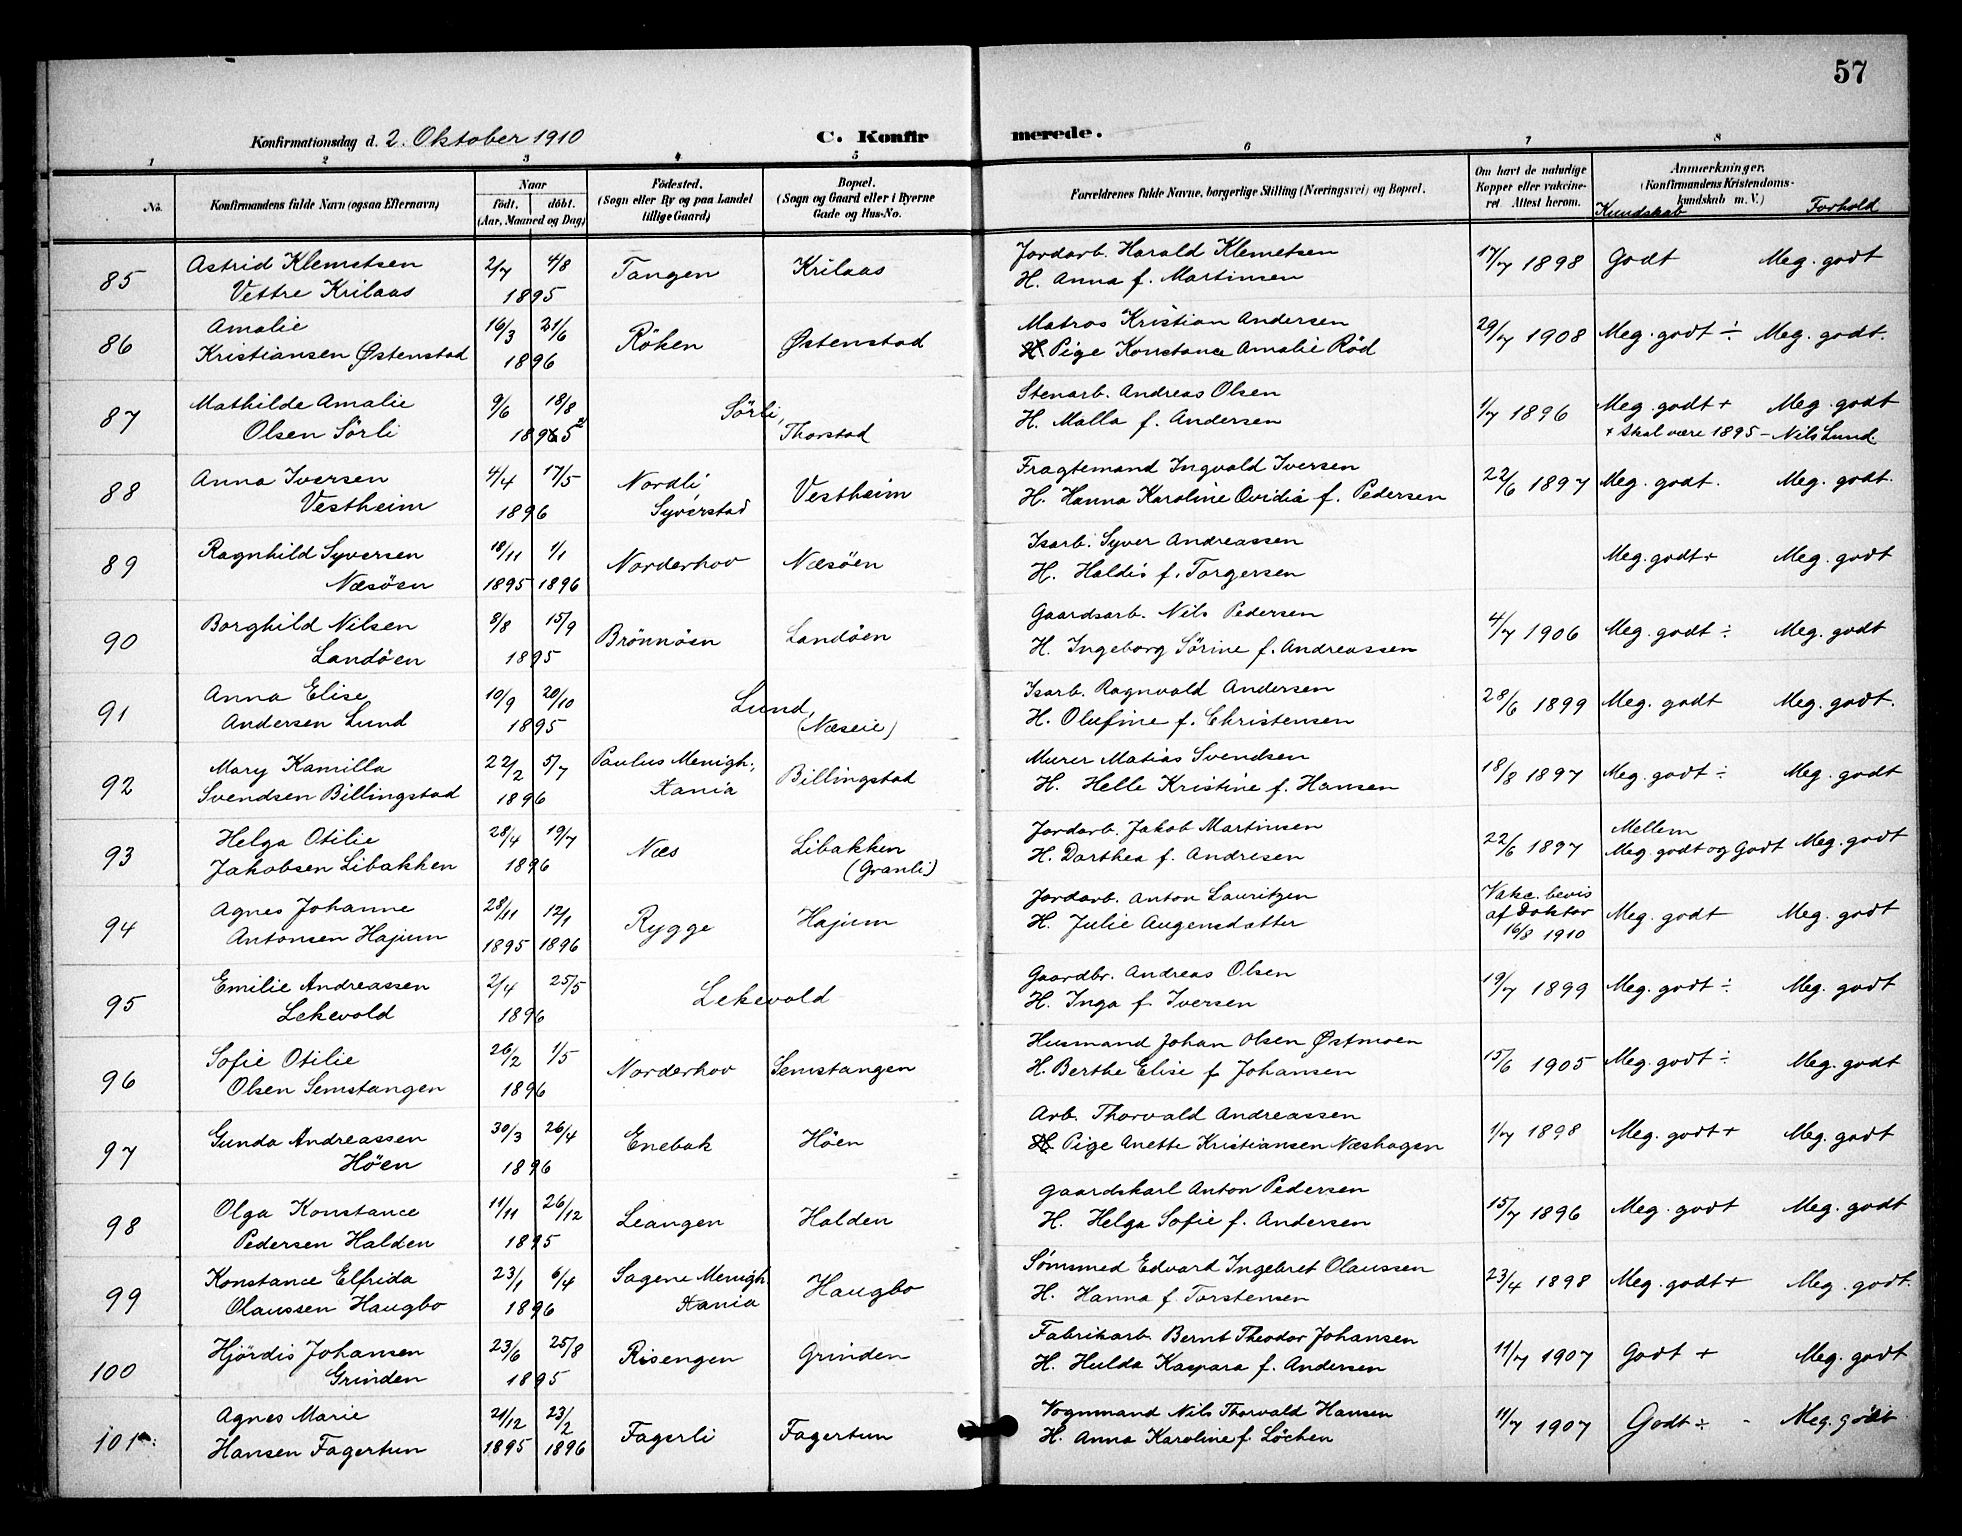 57
Konfirmationsdag d. 2. Oktober 1910 C. Konfirmerede.
1 2 3 4 5 6 7 8
No. Konfirmandens fulde Navn (ogsaa Efternavn) Naar født. døbt. (Aar, Maaned og Dag) Fødested. (Sogn eller By og paa Landet tillige Gaard) Bopæl. (Sogn og Gaard eller i Byerne Gade og Hus-No. Forældrenes fulde Navne, borgerlige Stilling (Næringsvei) og Bopæl. Om havt de naturlige Kopper eller vaccineret Attest herom. Anmærkninger, (Konfirmandens Kristendomskundskab m. V.) Kundskab Forhold
85 Astrid Klemetsen 2/7 4/8 Tangen Krilaas Jordarb. Harald Klemetsen 17/7 1898 Godt Meg. godt
Vettre Krilaas 1895 H. Anna f. Martinsen
86 Amalie 16/3 21/6 Röken Østenstad Matros Kristian Andersen 29/7 1908 Meg. godt ÷ Meg. godt.
Kristiansen Østenstad 1896 H. Pige Konstance Amalie Röd
87 Mathilde Amalie 9/6 18/8 Sörli, Stenarb. Andreas Olsen 1/7 1896 Meg. godt + Meg. godt
Olsen Sörli 1896 5 Thorstad H. Malla f. Andersen + skal være 1895 - Nils Lund.
88 Anna Iversen 4/4 17/5 Nordli Vestheim Fragtemand Ingvald Iversen 22/6 1897 Meg. godt. Meg. godt.
Vestheim 1896 Syverstad H. Hanna Karoline Ovidia f. Pedersen
89 Ragnhild Syversen 18/11 1/1 Norderhov Næsöen Isarb. Syver Andreassen Meg. godt + Meg. godt
Næsöen 1895 1896 H. Haldis f. Torgersen
90 Borghild Nilsen 8/8 15/9 Brönnöen Landöen Gaardsarb. Nils Pedersen 4/7 1906 Meg. godt ÷ Meg. godt
Landöen 1895 H. Ingeborg Sörine f. Andreassen
91 Anna Elise 10/9 20/10 Lund, Isarb. Ragnvald Andersen 28/6 1899 Meg. godt Meg. godt.
Andersen Lund 1895 (Næseie) H. Olufine f. Christensen
92 Mary Kamilla 22/2 5/7 Paulus Menigh., Billingstad Murer Matias Svendsen 18/8 1897 Meg. godt ÷ Meg. godt
Svendsen Billingstad 1896 Xania H. Helle Kristine f. Hansen
93 Helga Otilie 28/4 19/7 Næs Libakken Jordarb. Jakob Martinsen 22/6 1897 Mellem Meg. godt og Godt Meg. godt
Jakobsen Libakken 1896 (Granli) H. Dorthea f. Andresen
94 Agnes Johanne 28/11 12/1 Rygge Hajum Jordarb. Anton Lauritzen Vakc. bevis af Doktor 16/8 1910 Meg. godt Meg. godt
Antonsen Hajum 1895 1896 H. Julie Augensdatter
95 Emilie Andreassen 2/4 25/5 Lekevold Gaardbr. Andreas Olsen 19/7 1899 Meg. godt ÷ Meg. godt
Lekevold 1896 H. Inga f Iversen
96 Sofie Otilie 26/2 1/5 Norderhov Semstangen Husmand Johan Olsen Østmoen 15/6 1905 Meg. godt ÷ Meg. godt
Olsen Semstangen 1896 H. Berthe Elise f Johansen
97 Gunda Andreassen 30/3 26/4 Enebak Höen Arb. Thorvald Andreassen 1/7 1898 Meg. godt + Meg. godt
Höen 1896 H. Pige Anette Kristiansen Næshagen
98 Olga Konstance 11/11 26/12 Leangen Halden Gaardskarl Anton Pedersen 15/7 1896 Meg. godt Meg. godt
Pedersen Halden 1895 H. Helga Sofie f. Andersen
99 Konstance Elfrida 23/1 6/4 Sagene Menigh. Haugbo Sømsmed Edvard Ingebret Olaussen 23/4 1898 Meg. godt + Meg. godt.
Olaussen Haugbo 1896 Xania H. Hanna f. Torstensen
100 Hjördis Johansen 23/6 25/8 Risengen Grinden Fabrikarb. Bernt Theodor Johansen 11/7 1907 Godt + Meg. godt
Grinden 1895 H. Hulda Kaspara f. Andersen
101 Agnes Marie 21/12 23/2 Fagerli Fagertun Vognmand Nils Thorvald Hansen 11/7 1907 Godt ÷ - Meg. godt
Hansen Fagertun 1895 1896 H. Anna Karoline f. Löchen